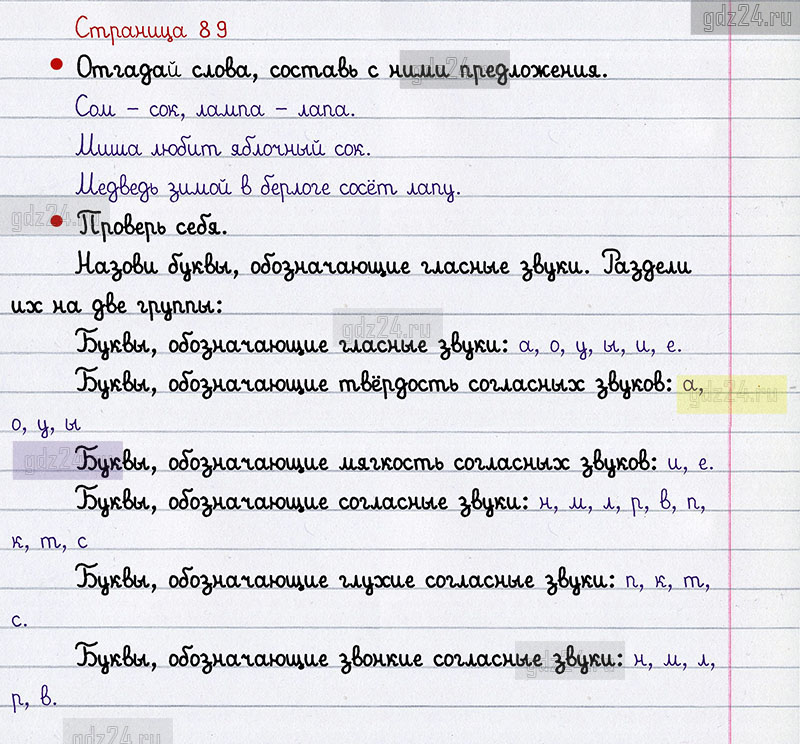 gdz24.ru
Страница 89
• Отгадай слова, составь с ними предложения.
gdz24.ru
Сом – сок, лампа – лапа.
Миша любит яблочный сок.
Медведь зимой в берлоге сосёт лапу.
gdz24.ru
• Проверь себя.
Назови буквы, обозначающие гласные звуки. Раздели
их на две группы:
gdz24.ru
Буквы, обозначающие гласные звуки: а, о, у, ы, и, е.
Буквы, обозначающие твёрдость согласных звуков: а,
gdz24.ru
о, у, ы
gdz24.ru
Буквы, обозначающие мягкость согласных звуков: и, е.
Буквы, обозначающие согласные звуки: н, м, л, р, в, п,
к, т, с
Буквы, обозначающие глухие согласные звуки: п, к, т,
с.
Буквы, обозначающие звонкие согласные звуки: н, м, л,
gdz24.ru
р, в.
gdz24.ru